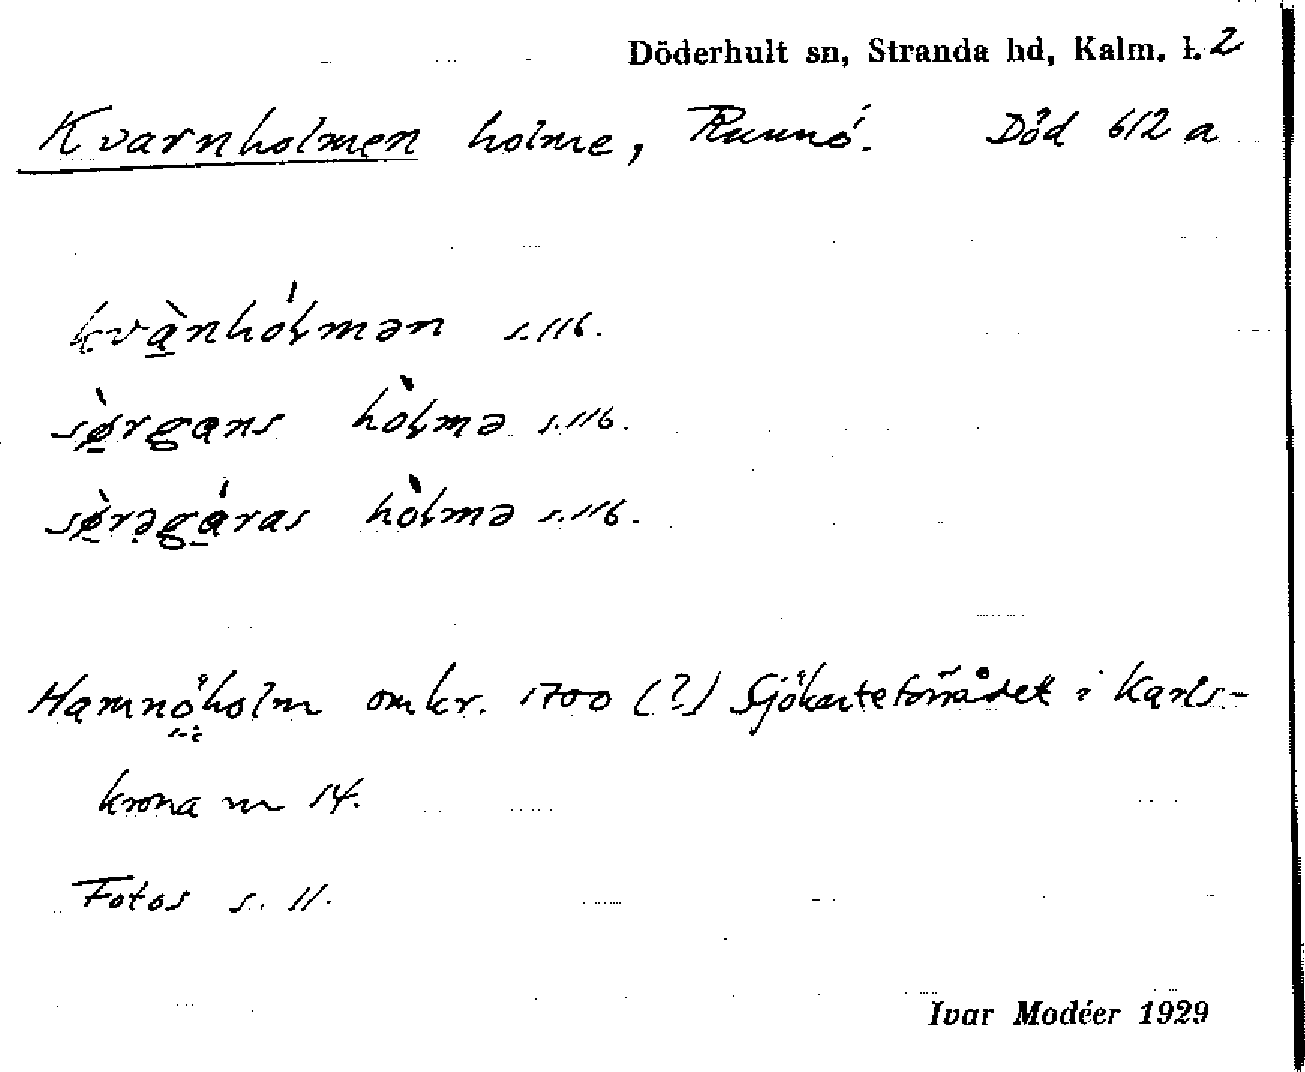 Döderhult sn, Stranda hd, Kalm. l. 2
Kvarnholmen holme, Runnö. Död 612 a
kvànhólmən s. 116.
sø̀rgans hòlmə s. 116.
sø̀rəgáras hòlmə s. 116.
Hamnöholm omkr. 1700 (?) Sjökarteförrådet i Karls-
krona nr 14.
Fotos s. 11.
Ivar Modéer 1929